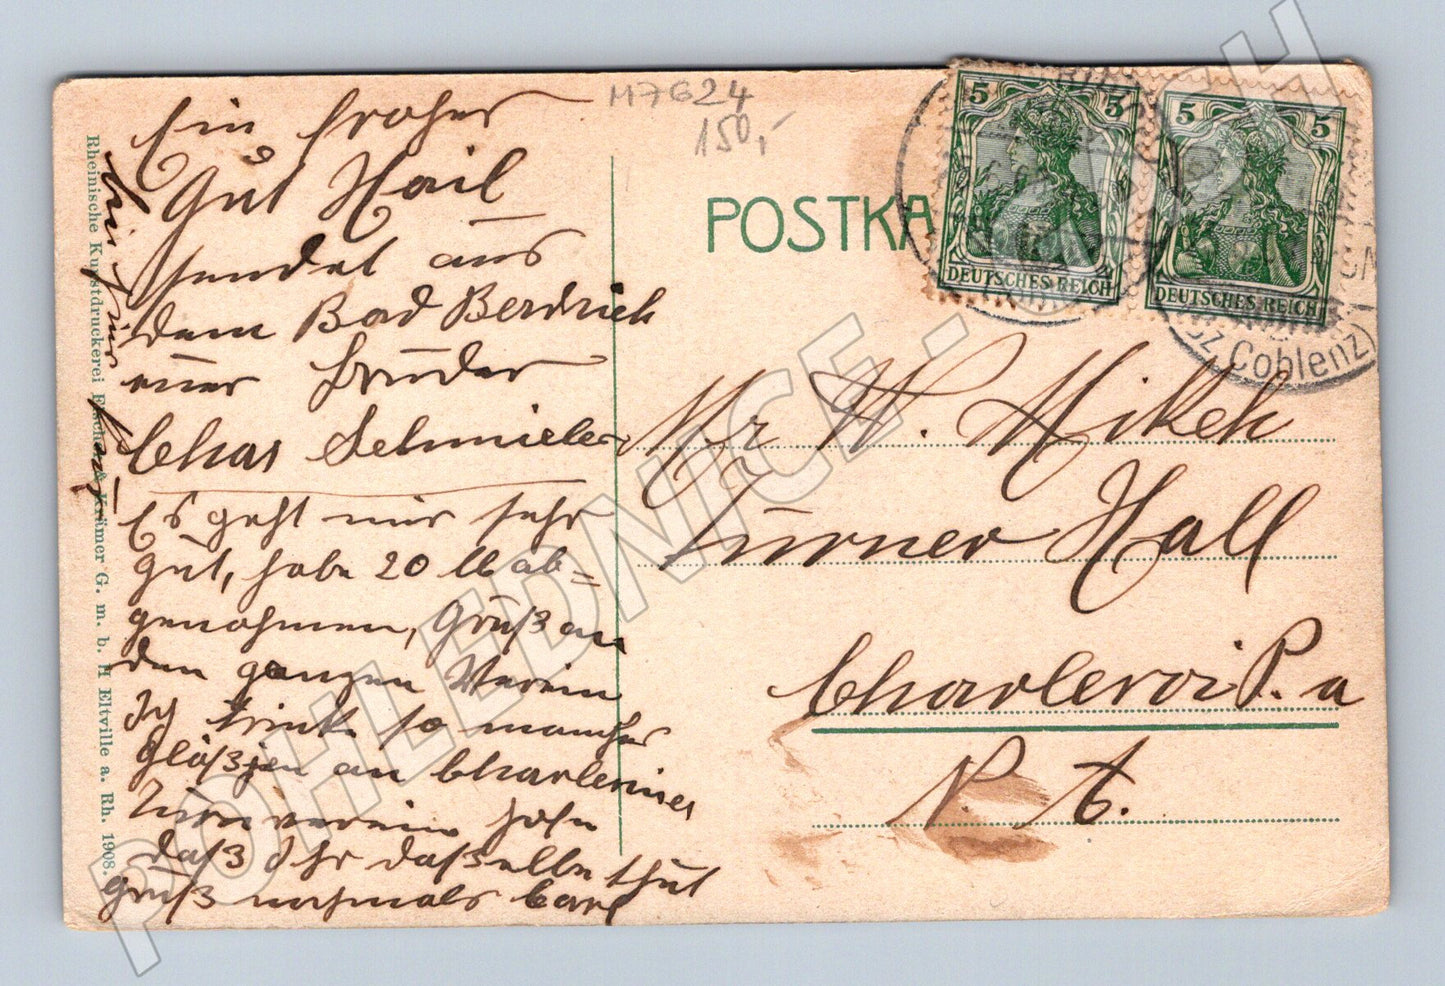 M7G24
150,-
Ein froher
Gut Heil
sendet aus
dem Bad Bertrich
euer Bruder
Chas Schmieler
Es geht mir sehr
gut, habe 20 lb ab=
genommen, Gruß an
den ganzen Verein
Ich trink so manches
Gläßjen an Charleroier
Turnverein hofe
daß Ihr daßselbe thut
Gruß nochmals Carl
Rheinische Kunstdruckerei Escher & Krämer G. m. b. H Eltville a. Rh. 1908.
POSTKA
5 5
DEUTSCHES REICH
5 5
DEUTSCHES REICH
Coblenz)
Mr W. Mikeh
Turner Hall
Charleroi P. a
N. A.
POHLEDNICE - CH